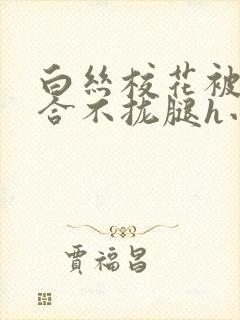 白丝校花被
合不拢腿h小
贾福昌